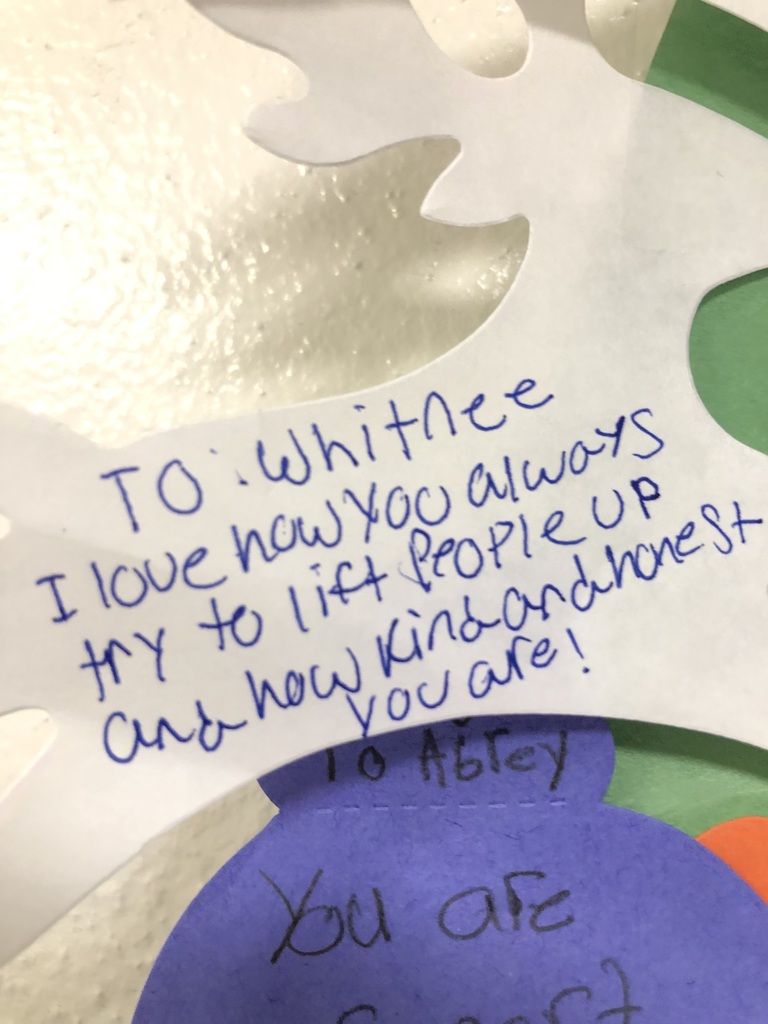 TO: Whitnee
I love how you always
try to lift People up
and how kind and honest
you are!
To Abrey
You are